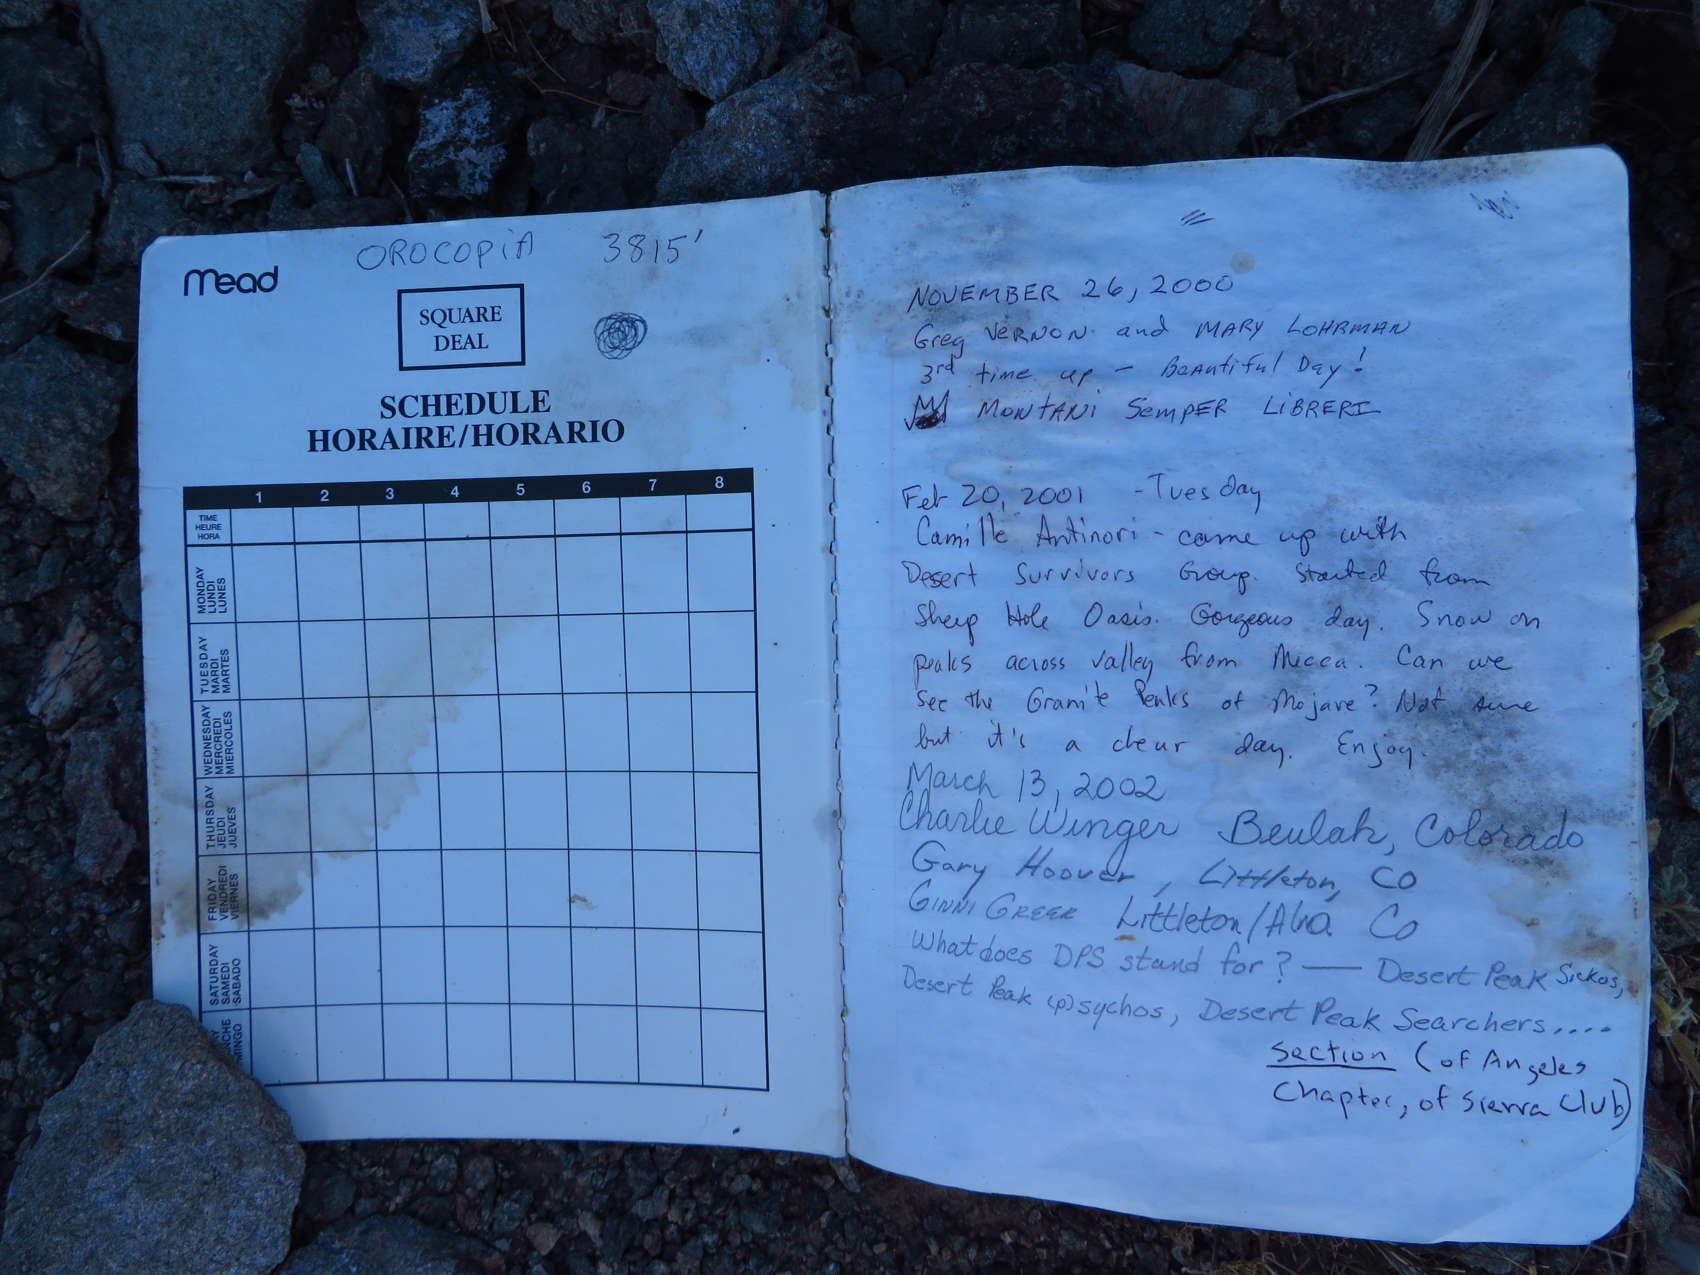 OROCOPIA 3815'
Mead
SQUARE
DEAL
SCHEDULE
HORAIRE/HORARIO
1 2 3 4 5 6 7 8
TIME
HEURE
HORA
MONDAY
LUNDI
LUNES
TUESDAY
MARDI
MARTES
WEDNESDAY
MERCREDI
MIERCOLES
THURSDAY
JEUDI
JUEVES
FRIDAY
VENDREDI
VIERNES
SATURDAY
SAMEDI
SABADO
NOVEMBER 26, 2000
Greg VERNON and MARY LOHRMAN
3rd time up - Beautiful Day!
MONTANI SEMPER LIBRERI
Feb 20, 2001 - Tuesday
Camille Antinori - came up with
Desert Survivors Group. Started from
Sheep Hole Oasis. Gorgeous day. Snow on
peaks across valley from Mecca. Can we
see the Granite Peaks of Mojave? Not sure
but it's a clear day. Enjoy.
March 13, 2002
Charlie Winger Beulah, Colorado
Gary Hoover, Littleton, CO
GINNI GREER Littleton/ CO
What does DPS stand for? — Desert Peak Sickos,
Desert Peak (p)sychos, Desert Peak Searchers....
Section (of Angeles
Chapter, of Sierra Club)